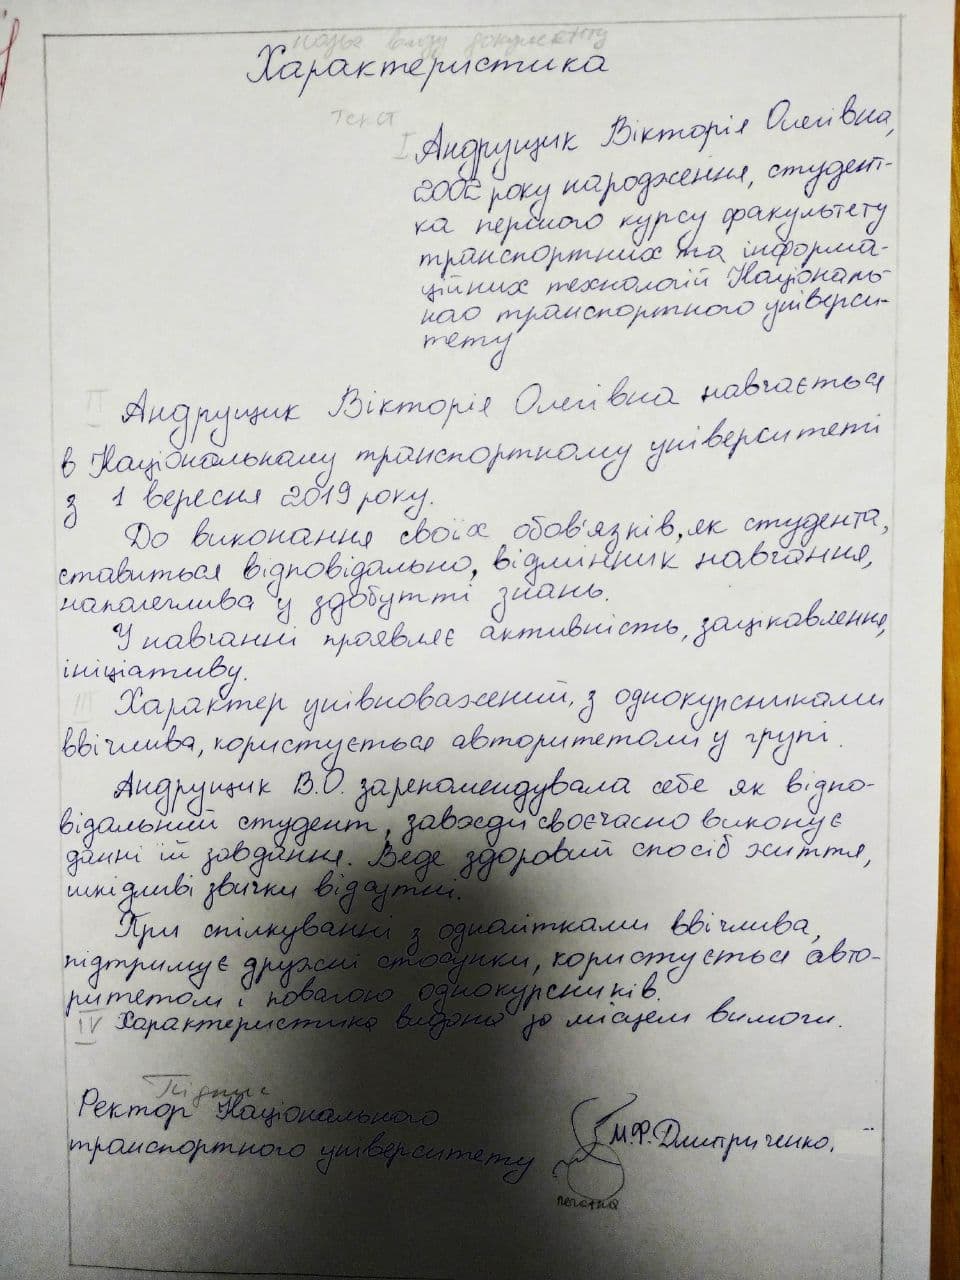 назва виду документу
Характеристика
текст
I Андрущик Вікторія Олегівна,
2002 року народження, студент-
ка першого курсу факультету
транспортних та інформа-
ційних технологій Національ-
ного транспортного універси-
тету
II Андрущик Вікторія Олегівна навчається
в Національному транспортному університеті
з 1 вересня 2019 року.
До виконання своїх обов'язків, як студента,
ставиться відповідально, відмінник навчання,
наполеглива у здобутті знань.
У навчанні проявляє активність, зацікавлення,
ініціативу.
III Характер урівноважений, з однокурсниками
ввічлива, користується авторитетом у групі.
Андрущик В.О. зарекомендувала себе як відпо-
відальний студент, завжди своєчасно виконує
данні їй завдання. Веде здоровий спосіб життя,
шкідливі звички відсутні.
При спілкуванні з однолітками ввічлива,
підтримує дружні стосунки, користується авто-
ритетом і повагою однокурсників.
IV Характеристика видана за місцем вимоги.
Підпис
Ректор Національного
транспортного університету М.Ф.Дмитриченко.
печатка